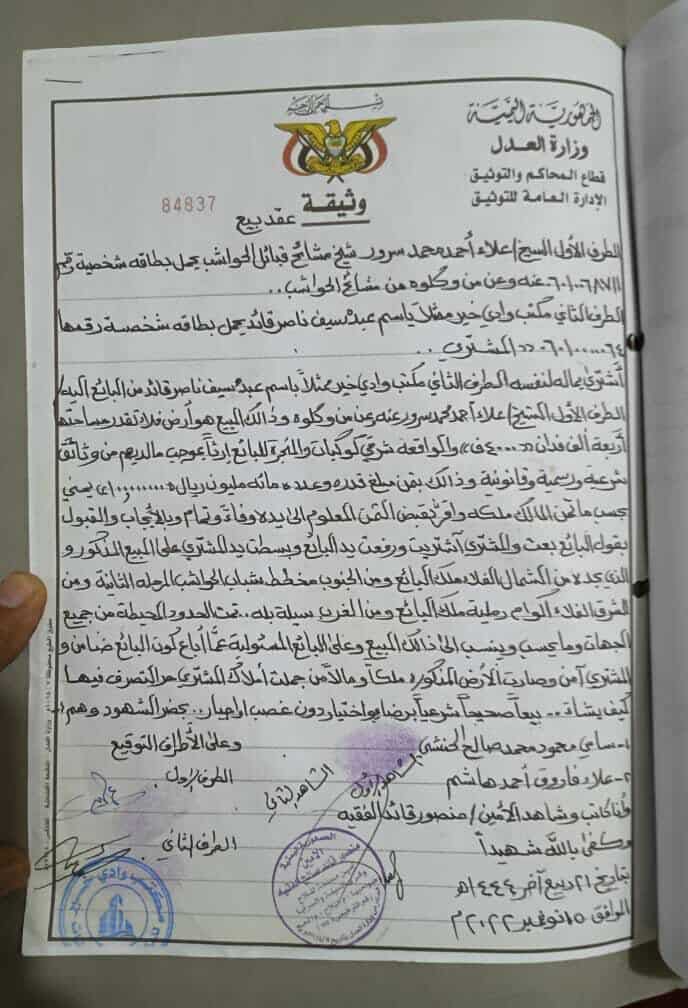 بسم الله الرحمن الرحيم
الجمهورية اليمنية
وزارة العدل
قطاع المحاكم والتوثيق
الإدارة العامة للتوثيق
84837
وثيقة عقد بيع
الطرف الأول الشيخ/ علاء أحمد محمد سرور شيخ مشائخ قبائل الحواشب يحمل بطاقه شخصية رقم
عنه وعن من وكلوه من مشائخ الحواشب ..
الطرف الثاني مكتب وادي خير ممثلاً باسم عبده سيف ناصر قائد يحمل بطاقه شخصسة رقمها
المشتري ..
أشترى بماله لنفسه الطرف الثاني مكتب وادي خير ممثلاً باسم عبده سيف ناصر قائد من البائع اليه/
الطرف الأول الشيخ/ علاء أحمد محمد سرور عنه وعن من وكلوه وذالك المبيع هو أرض فلاء تقدر مساحتها
أربعة ألف فدان «٤٠٠٠ف» والواقعه شرقي والمجرة للبائع إرثاً بموجب مالديهم من وثائق
شرعية ورسمية وقانونية وذالك بثمن مبلغ قدره وعدده مائه مليون ريال يمني
بحسب ماثمن المالك ملكه واقر بقبض الثمن المعلوم الى يده وفاءً وتمام وبالأيجاب والقبول
بقول البائع بعت والمشتري أشتريت ورفعت يد البائع وبسطت يد المشتري على المبيع المذكور و
الذي يحده من الشمال الفلاء ملك البائع ومن الجنوب مخطط شباب الحواشب المرحله الثانية ومن
الشرق الفلاء أكوام رملية ملك البائع ومن الغرب سيلة بله .. تمت الحدود المحيطة من جميع
الجهات وما يحسب وينسب الى ذالك المبيع وعلى البائع المسئولية عمّا أباع كون البائع ضامن و
المشتري آمن وصارت الأرض المذكوره ملكاً ومالاً من جملت أملاك المشتري حر التصرف فيها
كيف يشاء .. بيعاً صحيحاً شرعياً برضا واختيار دون غصب او اجبار .. بحضر الشهود وهم :
١- سامي محمود محمد صالح الحنشي
وعلى الأطراف التوقيع
٢- علاء فاروق أحمد هاشم
الشاهد الأول
الشاهد الثاني
الطرف الأول
وأنا كاتب وشاهد الأمين/ منصور قائد الفقيه
وكفى بالله شهيداً
الطرف الثاني
بتاريخ ٢١ ربيع آخر ١٤٤٤هـ
الموافق ١٥ نوفمبر ٢٠٢٢م